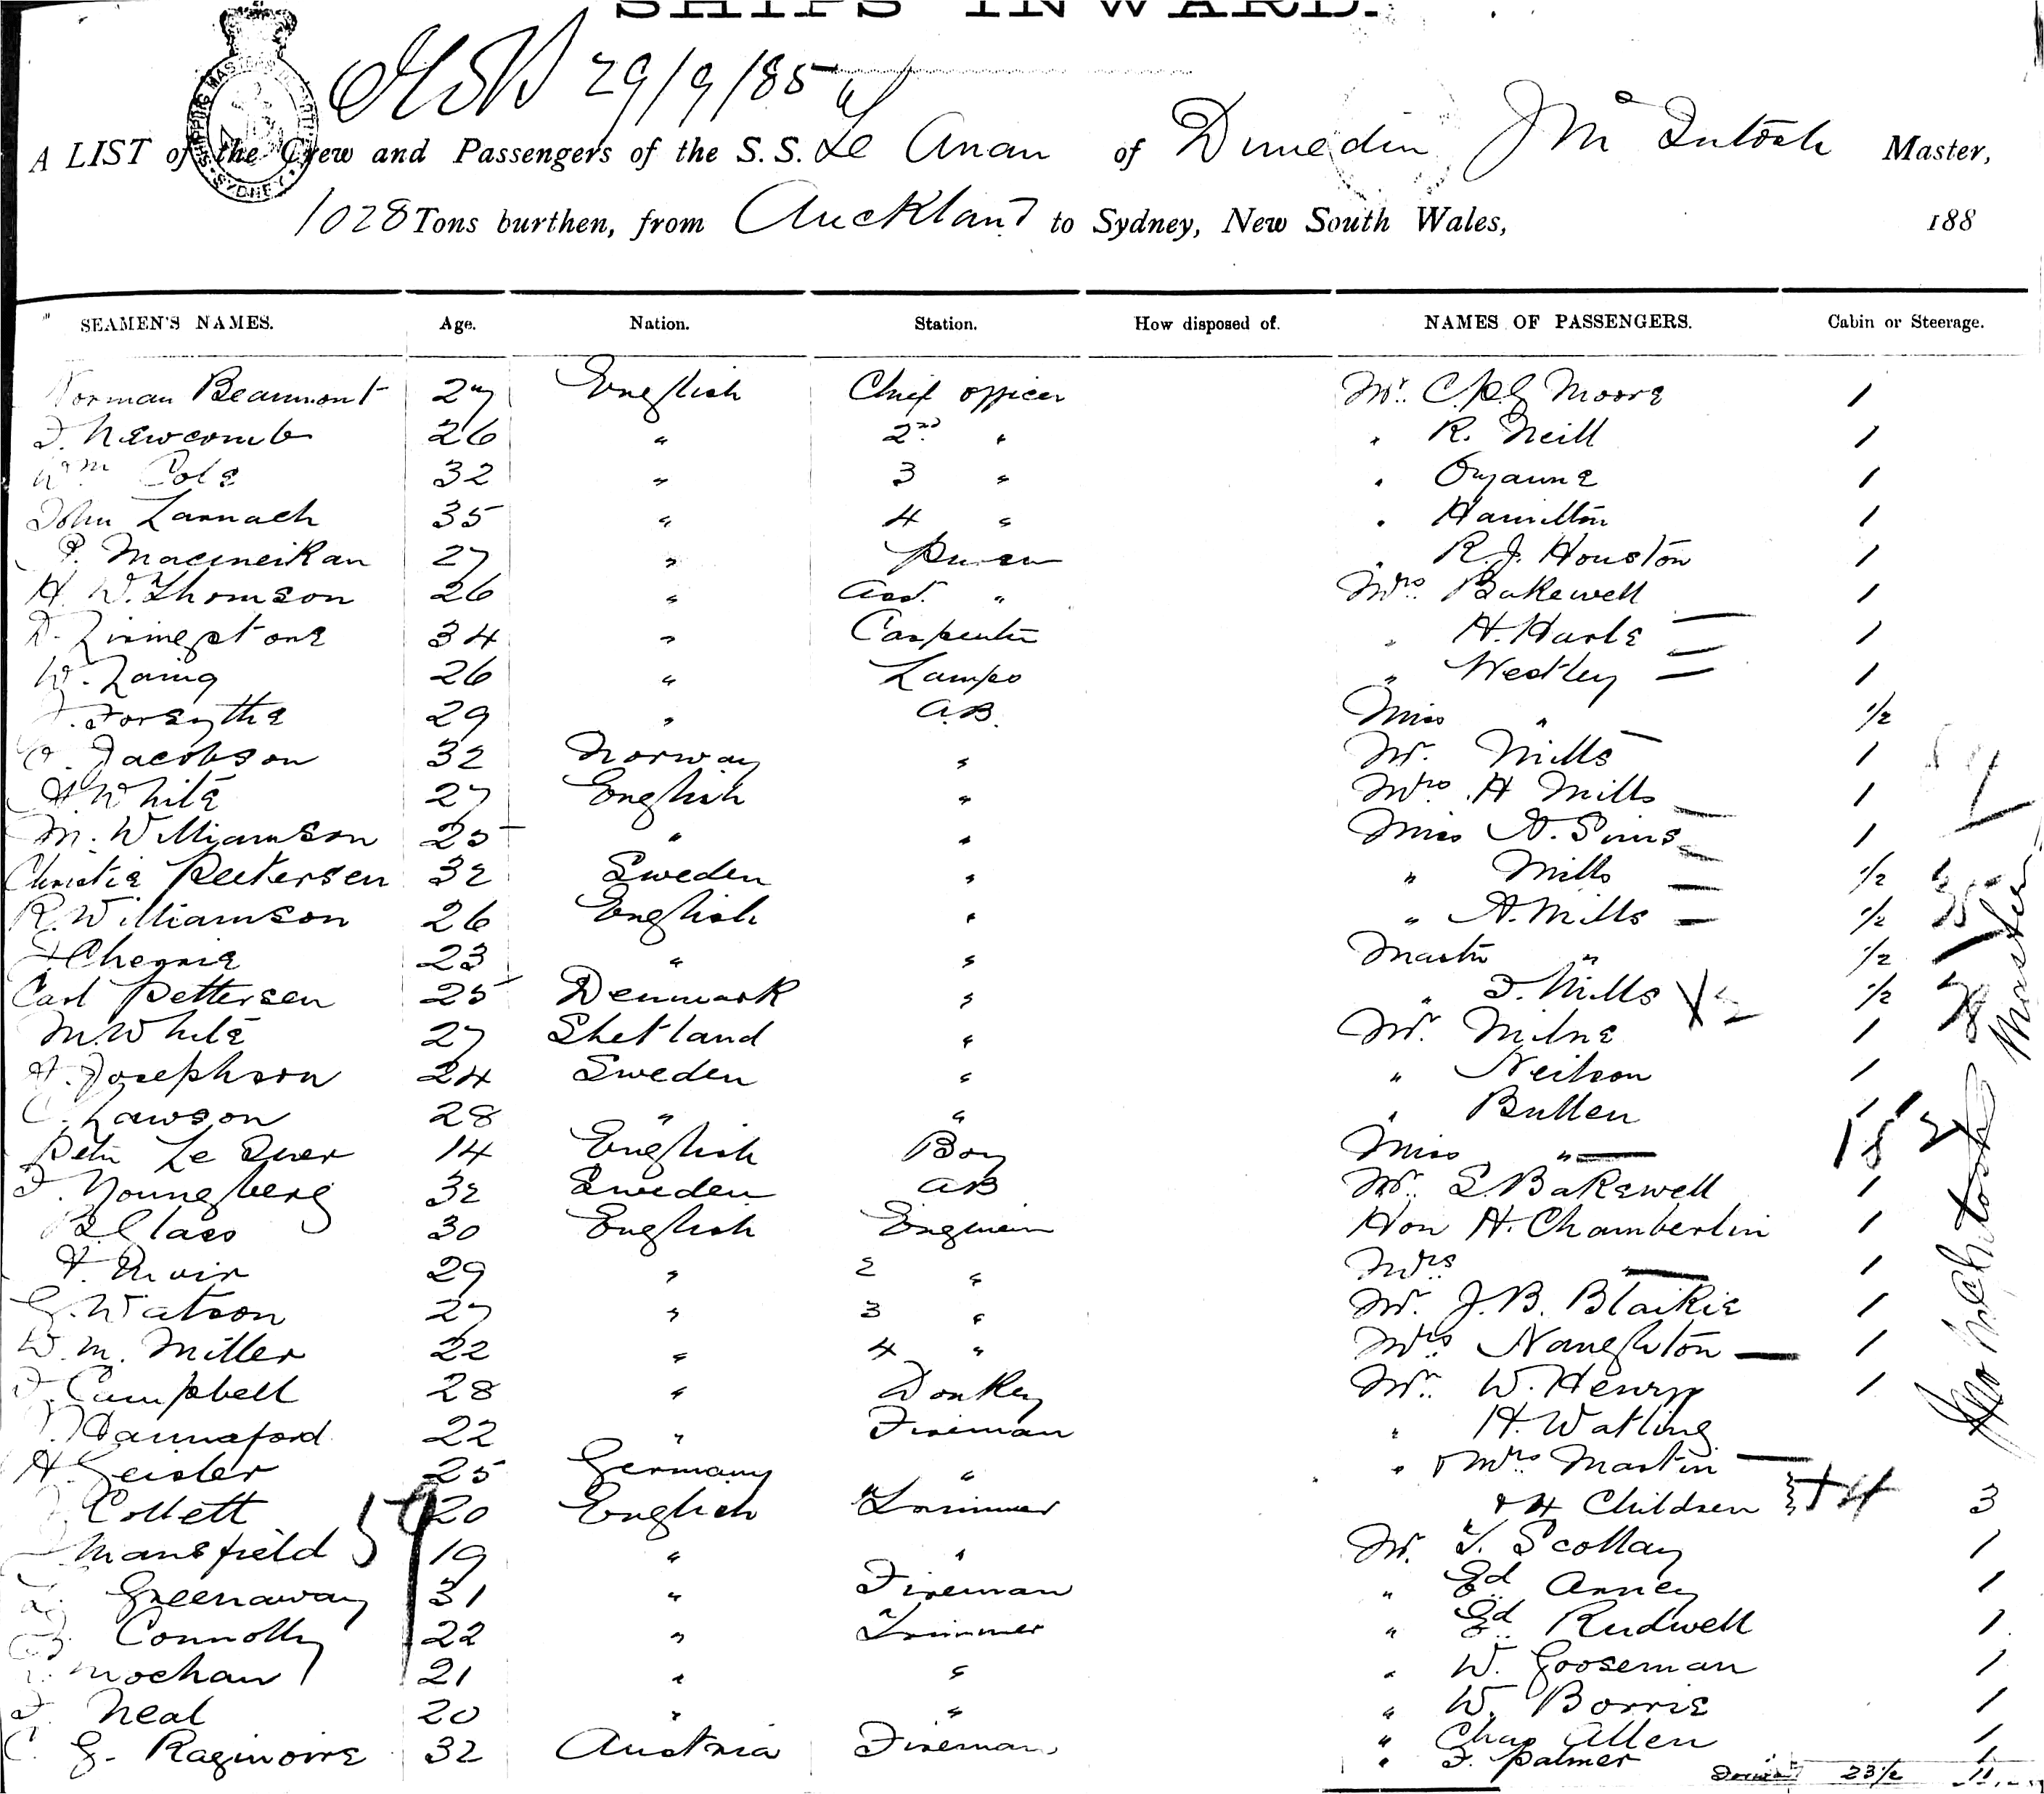 SHIPS INWARD.
SHIPPING MASTERS SYDNEY
29/9/85
A LIST of the Crew and Passengers of the S.S. Te Anau of Dunedin J Mc Intosh Master,
1028 Tons burthen, from Auckland to Sydney, New South Wales, 188
SEAMEN'S NAMES. Age. Nation. Station. How disposed of. NAMES OF PASSENGERS. Cabin or Steerage.
Norman Beaumont 27 English Chief officer Mr. Moore 1
Newcomb 26 " 2nd " " R. Neill 1
Wm Cole 32 " 3 " " 1
John Larnach 35 " 4 " " Hamilton 1
27 " Purser " R.J. Houston 1
H. W. Thomson 26 " Asst. " Mrs. Bakewell 1
D. Livingstone 34 " Carpenter " H. Harle 1
W. Laing 26 " Lamps " Westley 1
Forsythe 29 " A.B. Miss " 1/2
Jacobson 32 Norway " Mr. Mills 1
White 27 English " Mrs. H Mills 1
M. Williamson 25 " " Miss A. Sims 1
Christie Peetersen 32 Sweden " " Mills 1/2
R. Williamson 26 English " " A. Mills 1/2
23 " " Master " 1/2
Carl Pettersen 25 Denmark " " Mills 1/2
M. White 27 Shetland " Mr. Milne 1
Josephson 24 Sweden " " Neilson 1
C. Lawson 28 " " " Bullen 1
Peter Le Quer 14 English Boy Miss "
Youngberg 32 Sweden AB Mr. S. Bakewell 1
Glass 30 English Engineer Hon H. Chamberlin 1
Muir 29 " 2 " Mrs 1
G. Watson 27 " 3 " Mr. J. B. Blaikie 1
W. M. Miller 22 " 4 " Mrs Naughton 1
Campbell 28 " Donkey Mr. W. Henry 1
Hannaford 22 " Fireman " H. Watling
H. Geisler 25 Germany " " & Mrs Martin
Collett 20 English Trimmer & 4 Children 3
Mansfield 19 " " Mr. T. Scollay 1
Greenaway 31 " Fireman " Ed. Anney 1
Connolly 22 " Trimmer " Ed. Rudwell 1
Mochan 21 " " " W. Gooseman 1
Neal 20 " " " W. Borrie 1
G. 32 Austria Fireman " Chas Allen 1
" Palmer 1
23 1/2 11
59
Jno McIntosh Master